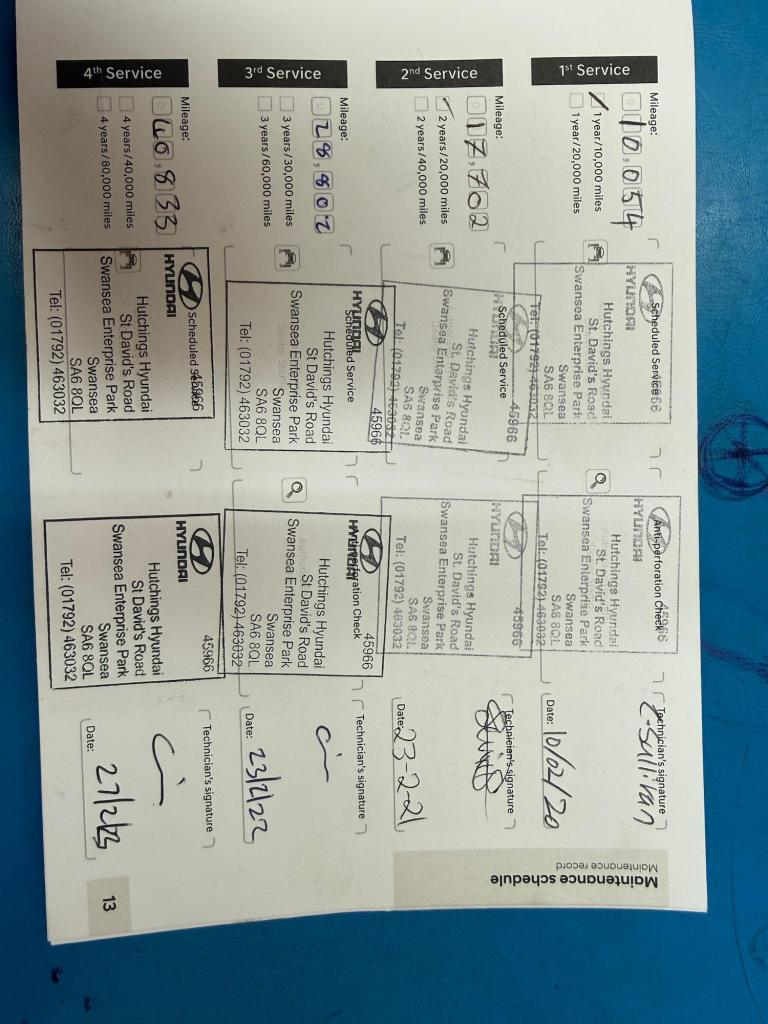 Maintenance schedule
Maintenance record
1st Service
Mileage:
10,054
1 year/10,000 miles
1 year/20,000 miles
Scheduled Service
45966
HYUNDAI
Hutchings Hyundai
St. David's Road
Swansea Enterprise Park
Swansea
SA6 8QL
Tel: (01792) 463032
Anti-perforation Check
45966
HYUNDAI
Hutchings Hyundai
St. David's Road
Swansea Enterprise Park
Swansea
SA6 8QL
Tel: (01792) 463032
Technician's signature
C-Sullivan
Date: 10/02/20
2nd Service
Mileage:
17,702
2 years/20,000 miles
2 years/40,000 miles
Scheduled Service
45966
HYUNDAI
Hutchings Hyundai
St. David's Road
Swansea Enterprise Park
Swansea
SA6 8QL
Tel: (01792) 463032
45966
HYUNDAI
Hutchings Hyundai
St. David's Road
Swansea Enterprise Park
Swansea
SA6 8QL
Tel: (01792) 463032
Technician's signature
Date: 23-2-21
3rd Service
Mileage:
28,802
3 years/30,000 miles
3 years/60,000 miles
Scheduled Service
45966
HYUNDAI
Hutchings Hyundai
St David's Road
Swansea Enterprise Park
Swansea
SA6 8QL
Tel: (01792) 463032
Anti-perforation Check
45966
HYUNDAI
Hutchings Hyundai
St David's Road
Swansea Enterprise Park
Swansea
SA6 8QL
Tel: (01792) 463032
Technician's signature
Date: 23/2/22
4th Service
Mileage:
40,833
4 years/40,000 miles
4 years/80,000 miles
Scheduled Service
45966
HYUNDAI
Hutchings Hyundai
St David's Road
Swansea Enterprise Park
Swansea
SA6 8QL
Tel: (01792) 463032
45966
HYUNDAI
Hutchings Hyundai
St David's Road
Swansea Enterprise Park
Swansea
SA6 8QL
Tel: (01792) 463032
Technician's signature
Date: 27/2/23
13